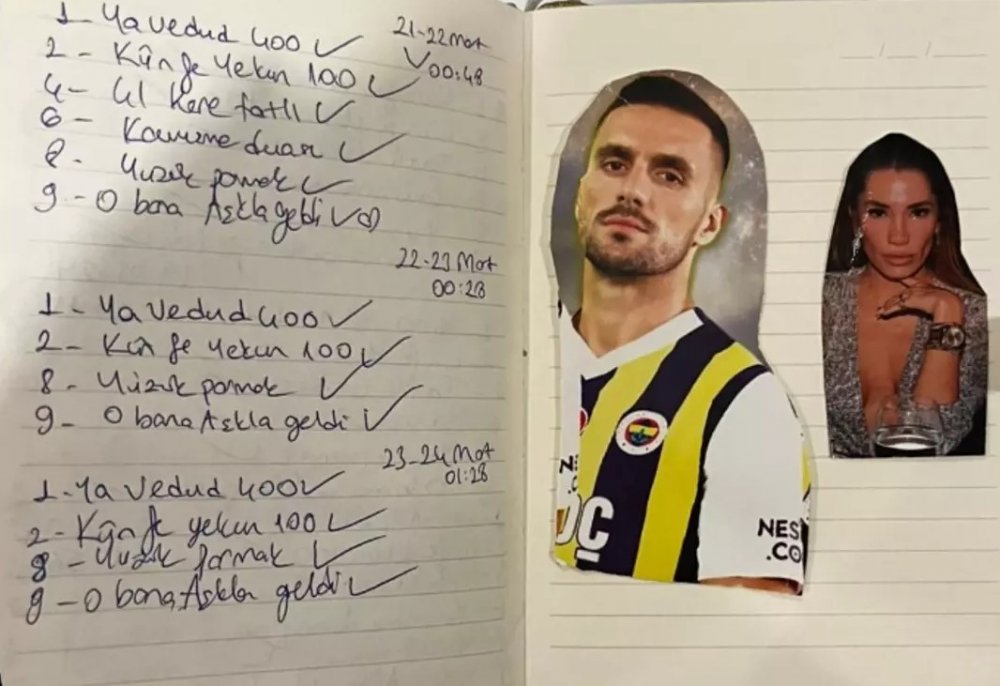 1- Ya Vedud 400 ✓
21-22 Mart
2- Kün fe Yekün 100 ✓
✓ 00:48
4- 41 Kere fatlı ✓
6- Kavuşma duası ✓
8- Yüzük parmak ✓
9-0 bana Aşkla geldi ✓
22-23 Mart
00:28
1- Ya Vedud 400 ✓
2- Kün fe Yekün 100 ✓
8- Yüzük parmak ✓
9-0 bana Aşkla geldi ✓
23-24 Mart
01:28
1-Ya Vedud 400 ✓
2- Kün fe yekün 100 ✓
8-Yüzük parmak ✓
9-0 bana Aşkla geldi ✓
NES
.CO